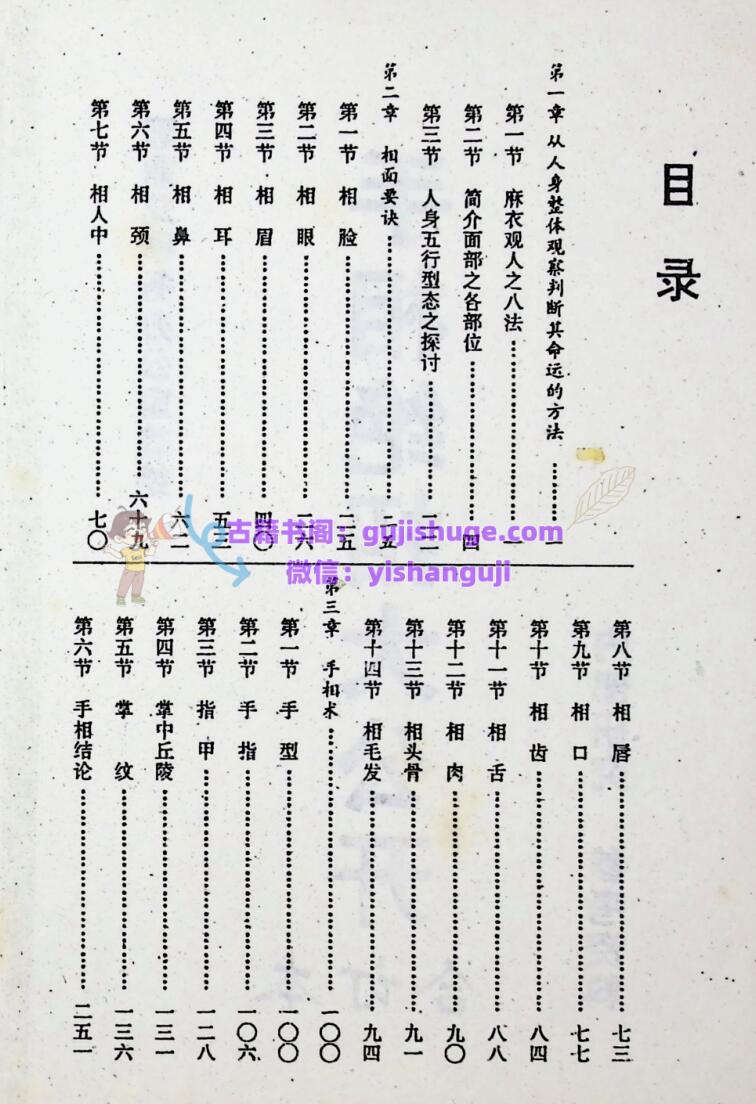 目录
第一章 从人身整体观察判断其命运的方法………一
第一节 麻衣观人之八法………一
第二节 简介面部之各部位………四
第三节 人身五行型态之探讨………二二
第二章 相面要诀………二五
第一节 相脸………二五
第二节 相眼………二六
第三节 相眉………四〇
第四节 相耳………五三
第五节 相鼻………六二
第六节 相颈………六十九
第七节 相人中………七〇
第八节 相唇………七三
第九节 相口………七七
第十节 相齿………八四
第十一节 相舌………八八
第十二节 相肉………九〇
第十三节 相头骨………九一
第十四节 相毛发………九四
第三章 手相术………一〇〇
第一节 手型………一〇〇
第二节 手指………一〇六
第三节 指甲………一二八
第四节 掌中丘陵………一三一
第五节 掌纹………一三六
第六节 手相结论………二五一
古籍书阁：gujishuge.com
微信：yishanguji